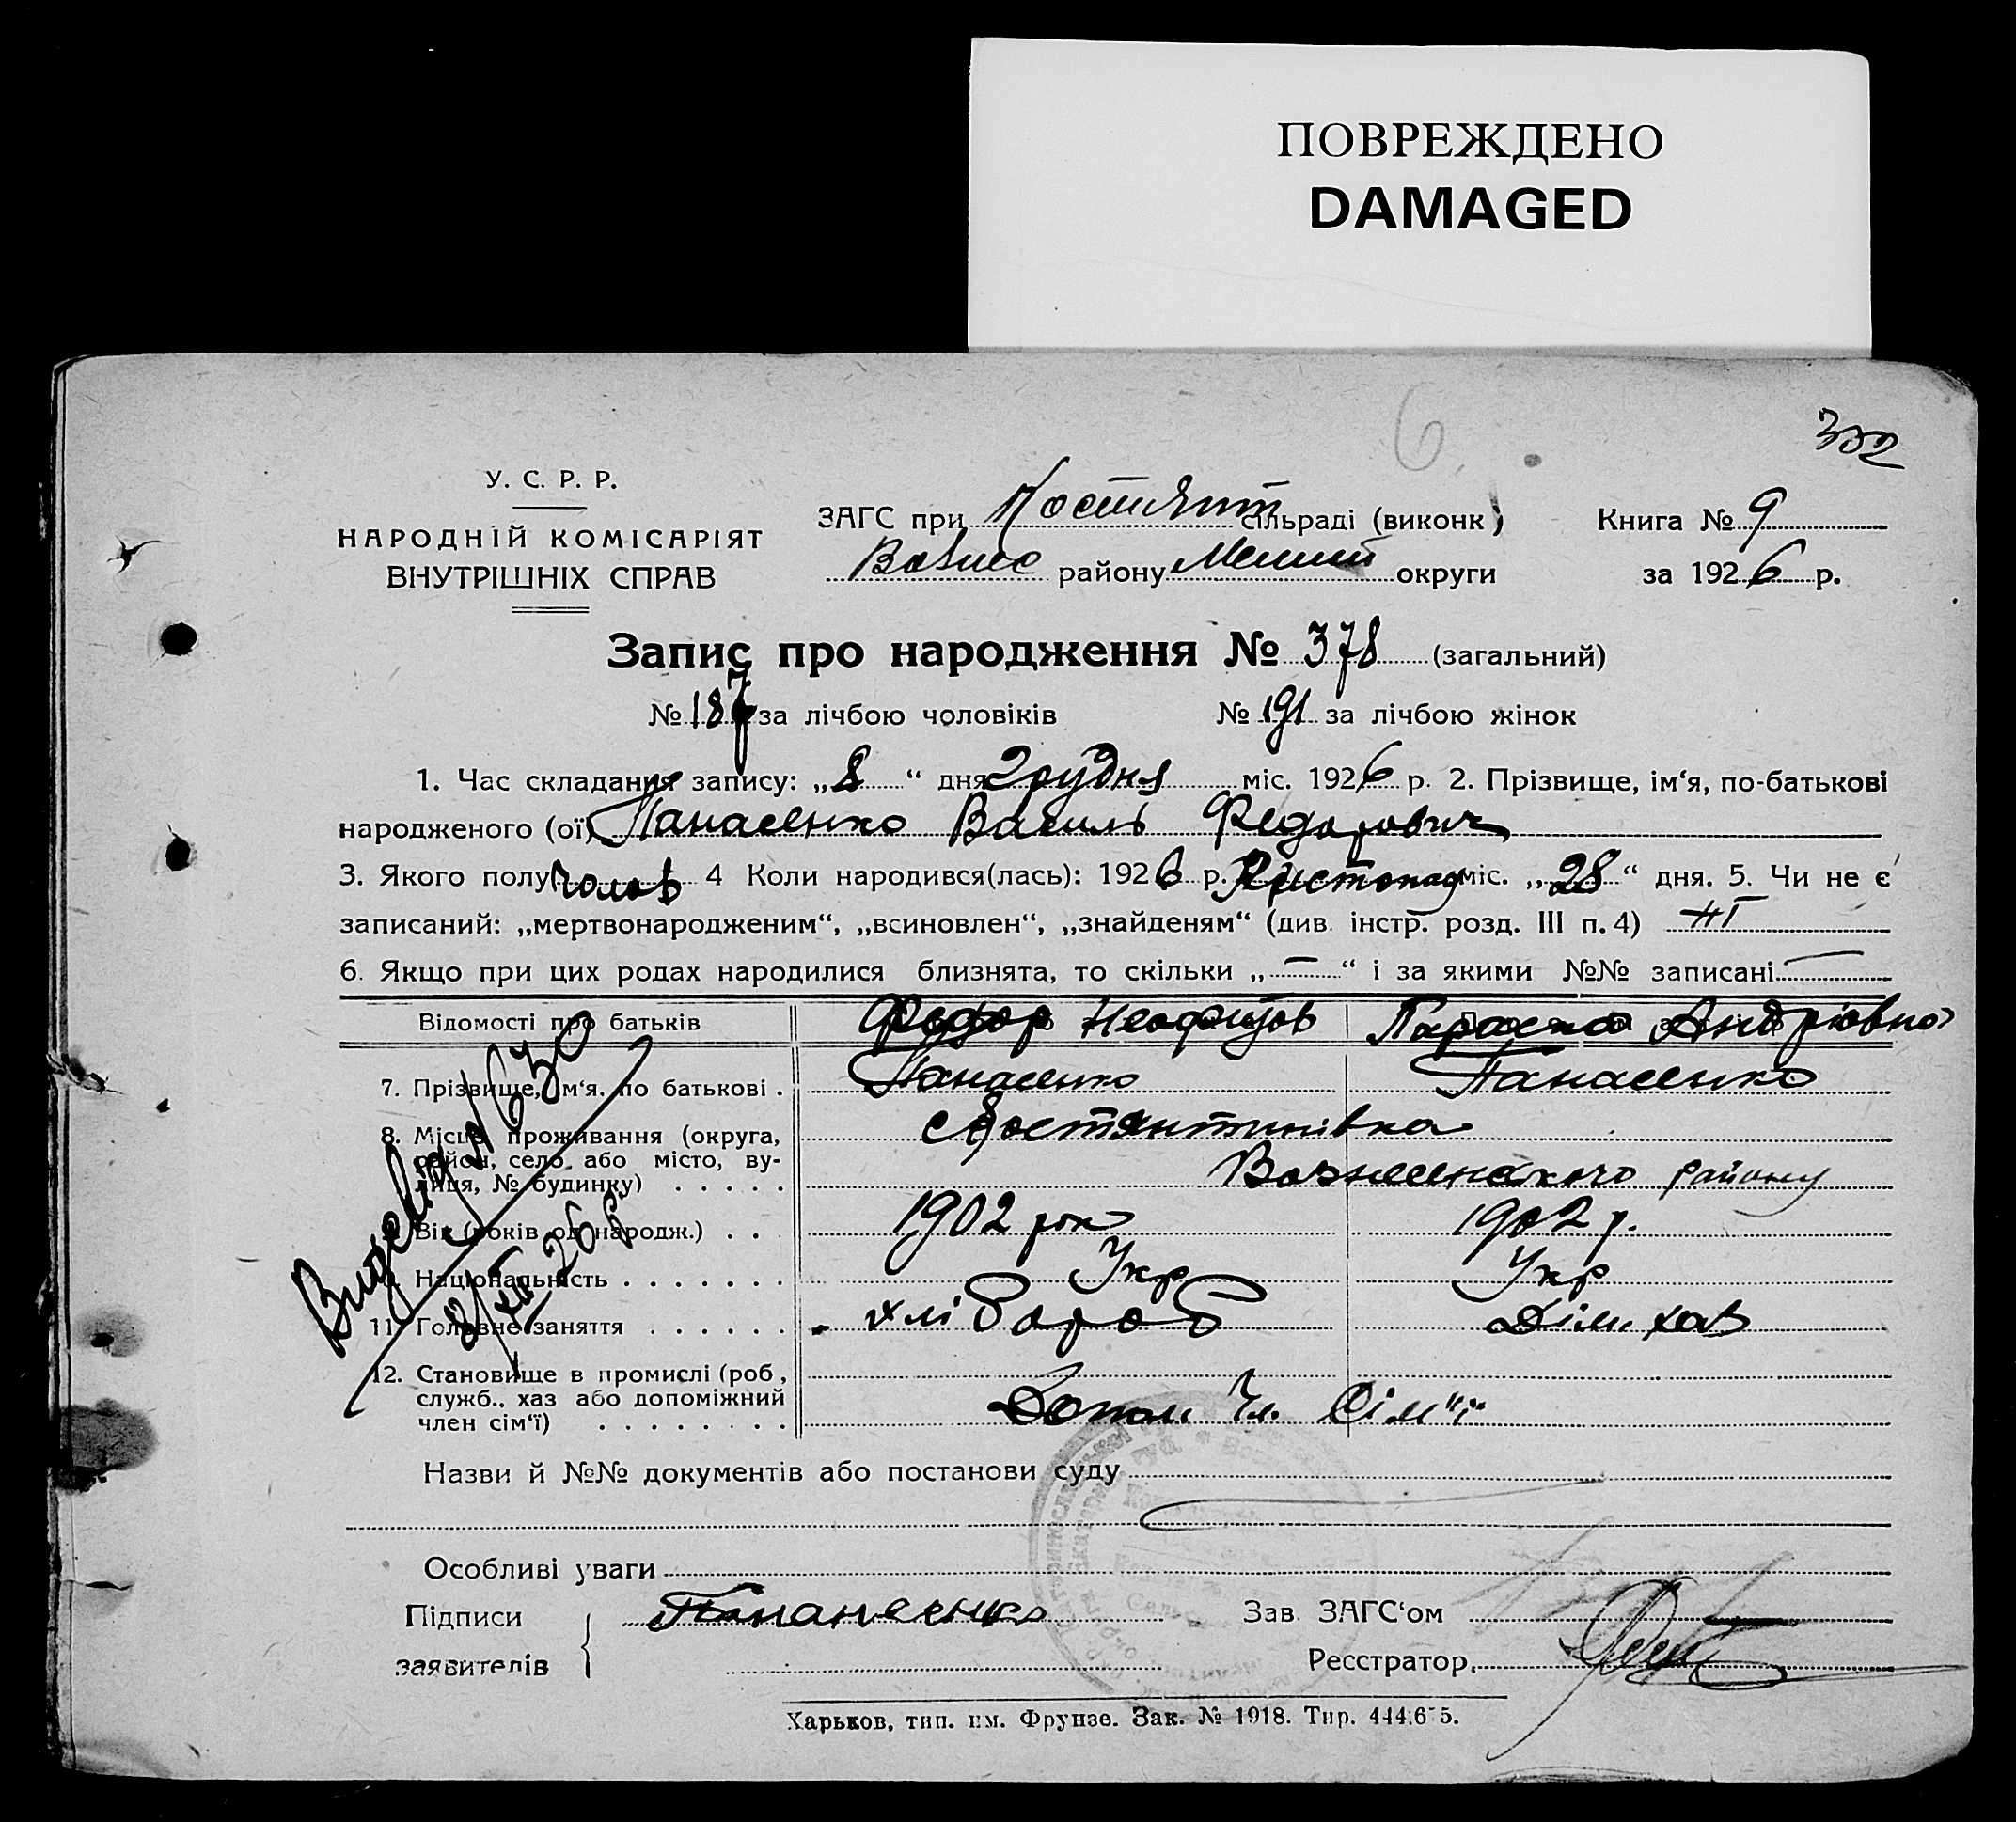 ПОВРЕЖДЕНО
DAMAGED
6
332
У. С. Р. Р.
НАРОДНІЙ КОМІСАРІЯТ
ВНУТРІШНІХ СПРАВ
ЗАГС при Костянт сільраді (виконк)
Вознес району Мелит округи
Книга № 9
за 1926 р.
Запис про народження № 378 (загальний)
№ 187 за лічбою чоловіків № 191 за лічбою жінок
1. Час складання запису: „8“ дня Грудня міс. 1926 р. 2. Прізвище, ім‘я, по-батькові
народженого (ої) Панасенко Василь Федорович
3. Якого полу чолов 4 Коли народився(лась): 1926 р. Листопад міс. „28“ дня. 5. Чи не є
записаний: „мертвонародженим“, „всиновлен“, „знайденям“ (див. інстр. розд. III п. 4) НІ
6. Якщо при цих родах народилися близнята, то скільки „—“ і за якими №№ записані —
Відомості про батьків Федор Неофитов Параска Андріовна
7. Прізвище, ім‘я, по батькові . Панасенко Панасенко
8. Місце проживання (округа, с Костянтинівка
район, село або місто, ву-
лиця, № будинку) . . . . . Вознесенского району
Вік (років од народж.) . . 1902 рок 1902 р.
Національність . . . . . . . Укр Укр
11. Головне заняття . . . . . . хлібороб Дом. хаз
12. Становище в промислі (роб,
служб., хаз або допоміжний
член сім‘ї) . . . . . . . . Допом Чл. Сім"ї
Назви й №№ документів або постанови суду
Особливі уваги
Підписи Панасенко Зав. ЗАГС‘ом
заявителів Реєстратор
Харьков, тип. им. Фрунзе. Зак. № 1918. Тир. 444.675.
№ 1630
8/XII 26 р.